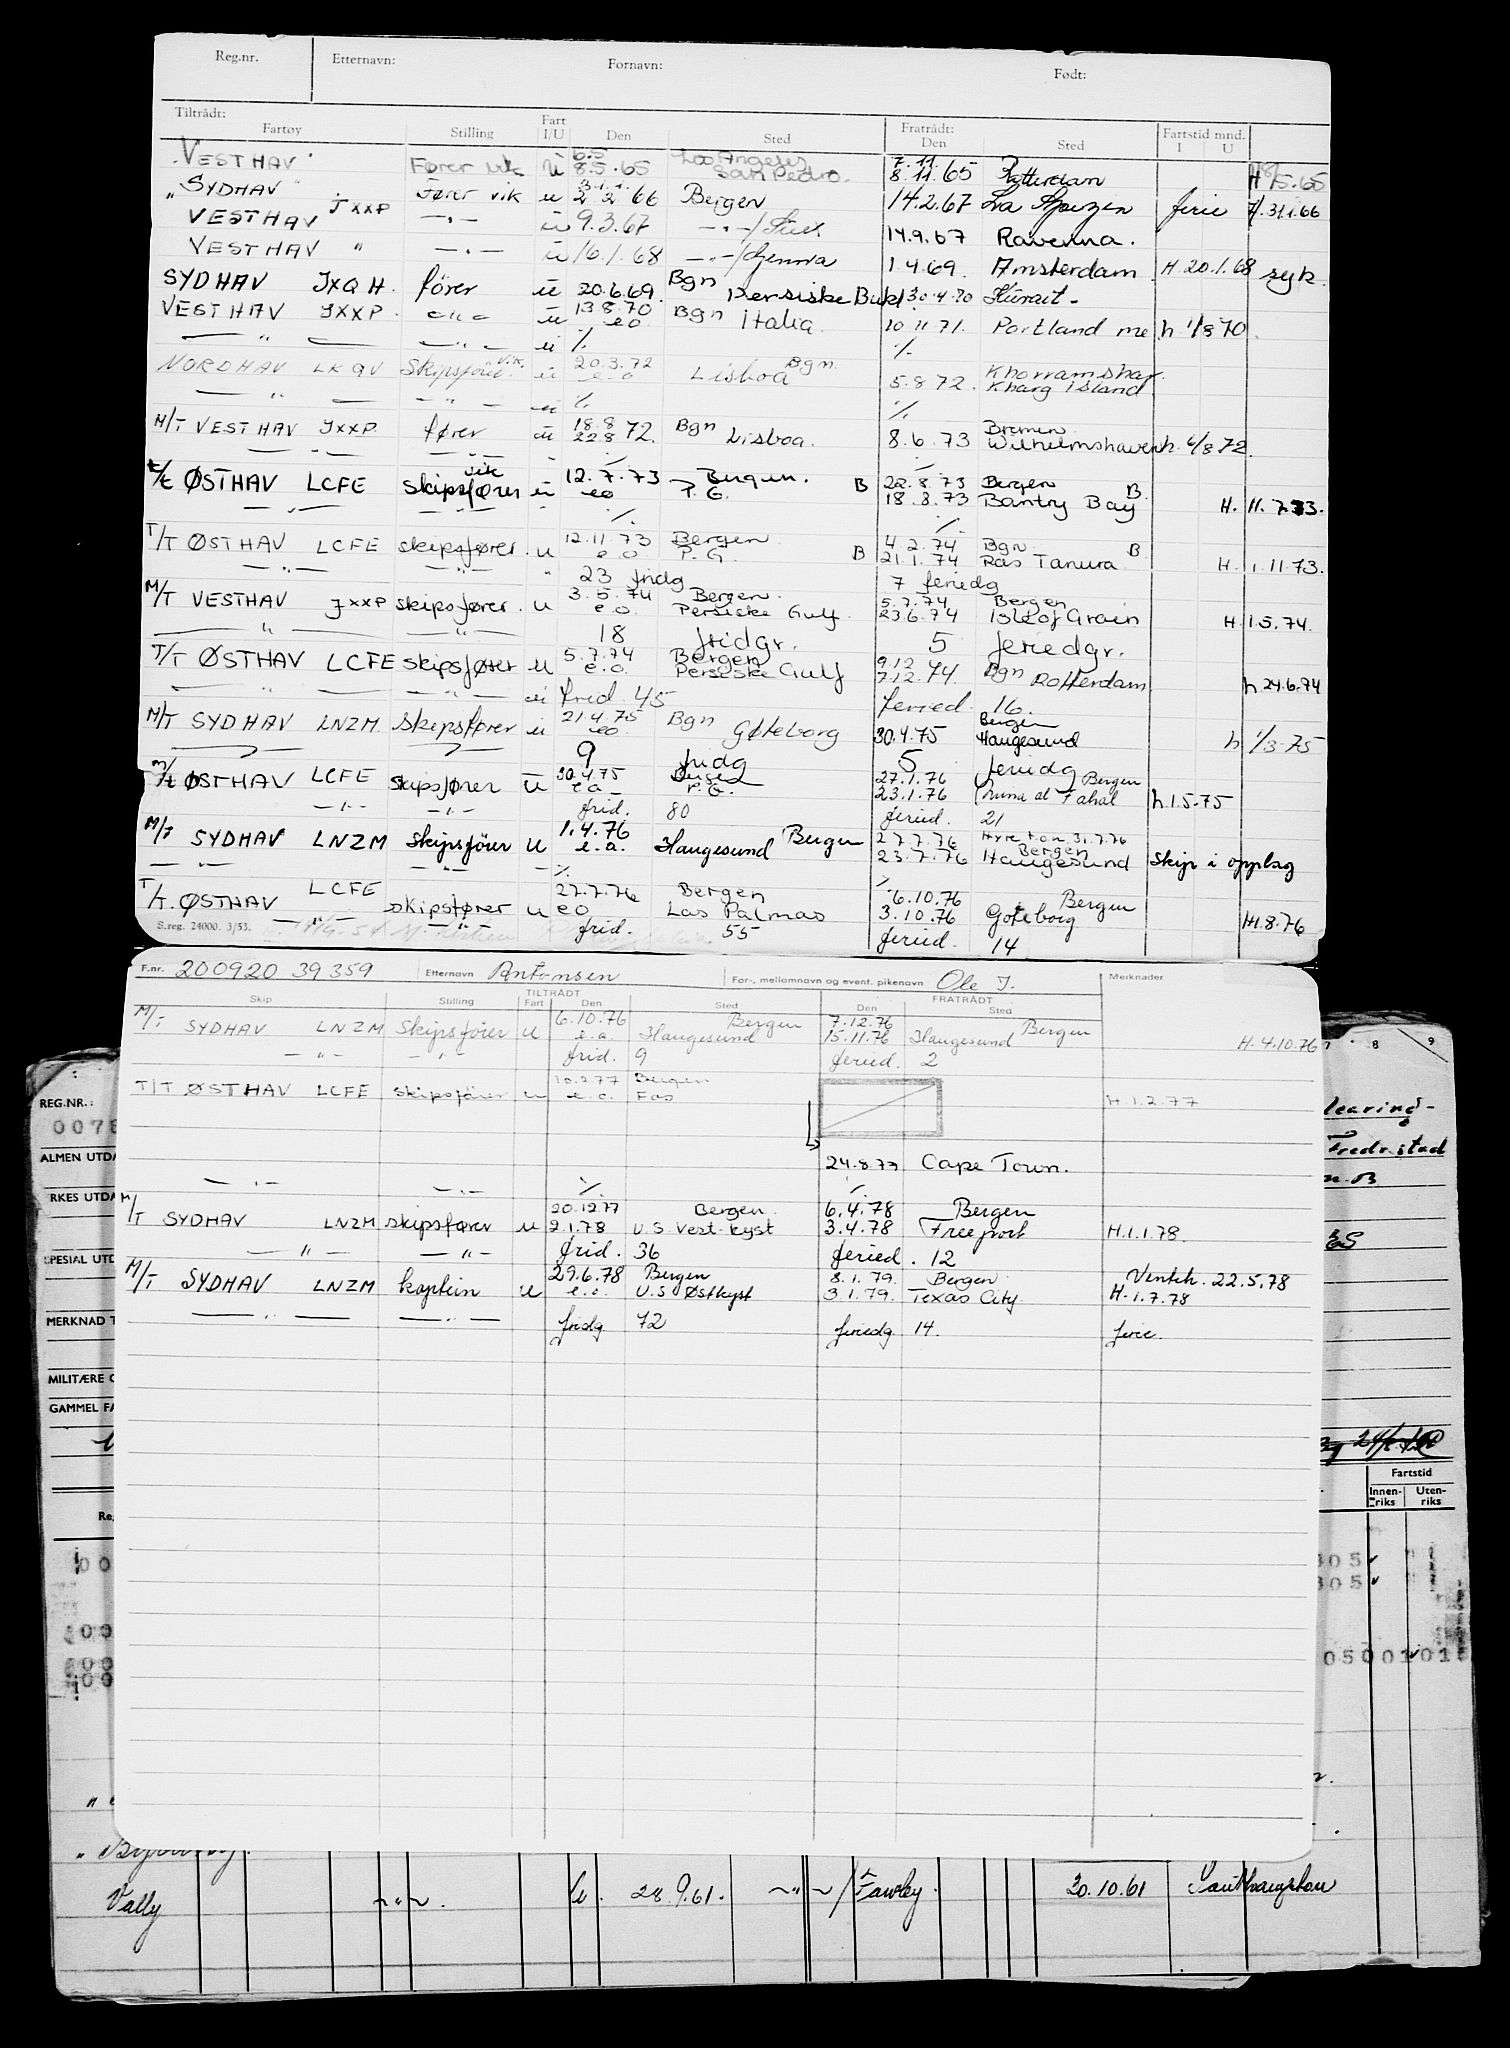 Reg.nr. Etternavn: Fornavn: Født:
Tiltrådt: Fratrådt:
Fartøy Stilling Fart I/U Den Sted Den Sted Fartstid mnd. I U
"VESTHAV" Fører vik u 6.5 8.5.65 Los Angeles San Pedro. 7.11. 8.11.65 Rotterdam H 1/5.65
"SYDHAV" Fører vik u 31.1. 2.2.66 Bergen 14.2.67 La Spezia ferie H. 31.1.66
VESTHAV JXXP —"— u 9.3.67 —"—/Suez 14.9.67 Ravenna.
VESTHAV " —"— u 16.1.68 —"—/Genova 1.4.69. Amsterdam H. 20.1.68 syk.
SYDHAV JXQH. fører u 20.6.69. Bgn Persiske Bukt. 30.4.70 Kuwait -
VESTHAV JXXP. —"— u 13.8.70 eo Bgn Italia. 10.11.71. Portland me. h. 1/8 70.
—"— — —"— u % %
NORDHAV LKQV Skipsfører vik. u 20.3.72 e.o Lisboa Bgn. 5.8.72. Khorramshar. Kharg Island
—"— — —"— u % %
M/T VESTHAV JXXP. fører u 18.8 22.8 72. Bgn Lisboa. 8.6.73 Bremen Wilhelmshaven h. 6/8 72.
—"— —"— % %
T/T ØSTHAV LCFE skipsfører vik u 12.7.73 eo Bergen. P.G. B 22.8.73 18.8.73 Bergen Bantry Bay B H. 11.7.73.
—"— —"— % %
T/T ØSTHAV LCFE skipsfører. u 12.11.73 e.o. Bergen P.G. B 4.2.74 21.1.74 Bgn. Ras Tanura B H. 1.11.73.
—"— —"— " 23 fridg 7 feriedg
M/T VESTHAV JXXP skipsfører. u 3.5.74 e.o. Bergen. Persiske Gulf. 5.7.74 23.6.74 Bergen Isle of Grain H. 1.5.74.
—"— —"— 18 fridgr. 5 feriedgr.
T/T ØSTHAV LCFE skipsfører u 5.7.74 e.o. Bergen Persiske Gulf 9.12 7.12.74. Bgn Rotterdam h. 24.6.74
—"— — —"— u frid. 45 feried. 16.
M/T SYDHAV LNZM skipsfører u 21.4.75 eo Bgn Gøteborg 30.4.75 Bergen Haugesund h 1/3-75
9 fridg 5 feriedg
ØSTHAV LCFE skipsfører u 30.4.75 e.o. Bergen P.G. 27.1.76 23.1.76 Bergen h. 1.5.75
—"— —"— frid. 80 feried. 21
M/T SYDHAV LNZM Skipsfører u 1.4.76 e.o. Haugesund Bergen 27.7.76 23.7.76 Hyre t.o.m. 31.7.76 Bergen Haugesund Skip i opplag
—"— —"— % %
T/T. ØSTHAV LCFE skipsfører u 27.7.76 eo Bergen Las Palmas 6.10.76 3.10.76 Bergen Gøteborg H1.8.76
S.reg. 24000. 3/53. —"— —"— frid. 55 feried. 14
F.nr. 200920 39359 Etternavn Antonsen For-, mellomnavn og event. pikenavn Ole J. Merknader
TILTRÅDT FRATRÅDT
Skip Stilling Fart Den Sted Den Sted
M/T SYDHAV LNZM Skipsfører u 6.10.76 e.o. Bergen Haugesund 7.12.76 15.11.76 Bergen Haugesund H. 4.10.76
—"— —"— frid. 9 feried. 2
T/T ØSTHAV LCFE skipsfører u 10.2.77 e.o. Bergen Fos H.1.2.77
24.8.77 Cape Town.
—"— —"— % %
M/T SYDHAV LNZM skipsfører u 20.12.77 2.1.78 Bergen. U.S. Vest-kyst 6.4.78 3.4.78 Bergen Freeport H.1.1.78.
—"— —"— frid. 36 feried. 12
M/T SYDHAV LNZM kaptein u 29.6.78 e.o. Bergen U.S. Østkyst 8.1.79. 3.1.79. Bergen Texas City. Ventch. 22.5.78 H.1.7.78
—"— —"— fridg 72 feriedg 14. ferie.
7 8 9
REG.NR.: 0078
learing-
ALMEN UTDA
Fredrstad
RKES UTDA
SPESIAL UTD
MERKNAD T
MILITÆRE
GAMMEL FA
Fartstid
Innen-riks Uten-riks
Re
305
305
0500101
Vally —"— u. 28.9.61. —"—/Fawley. 20.10.61 Southampton